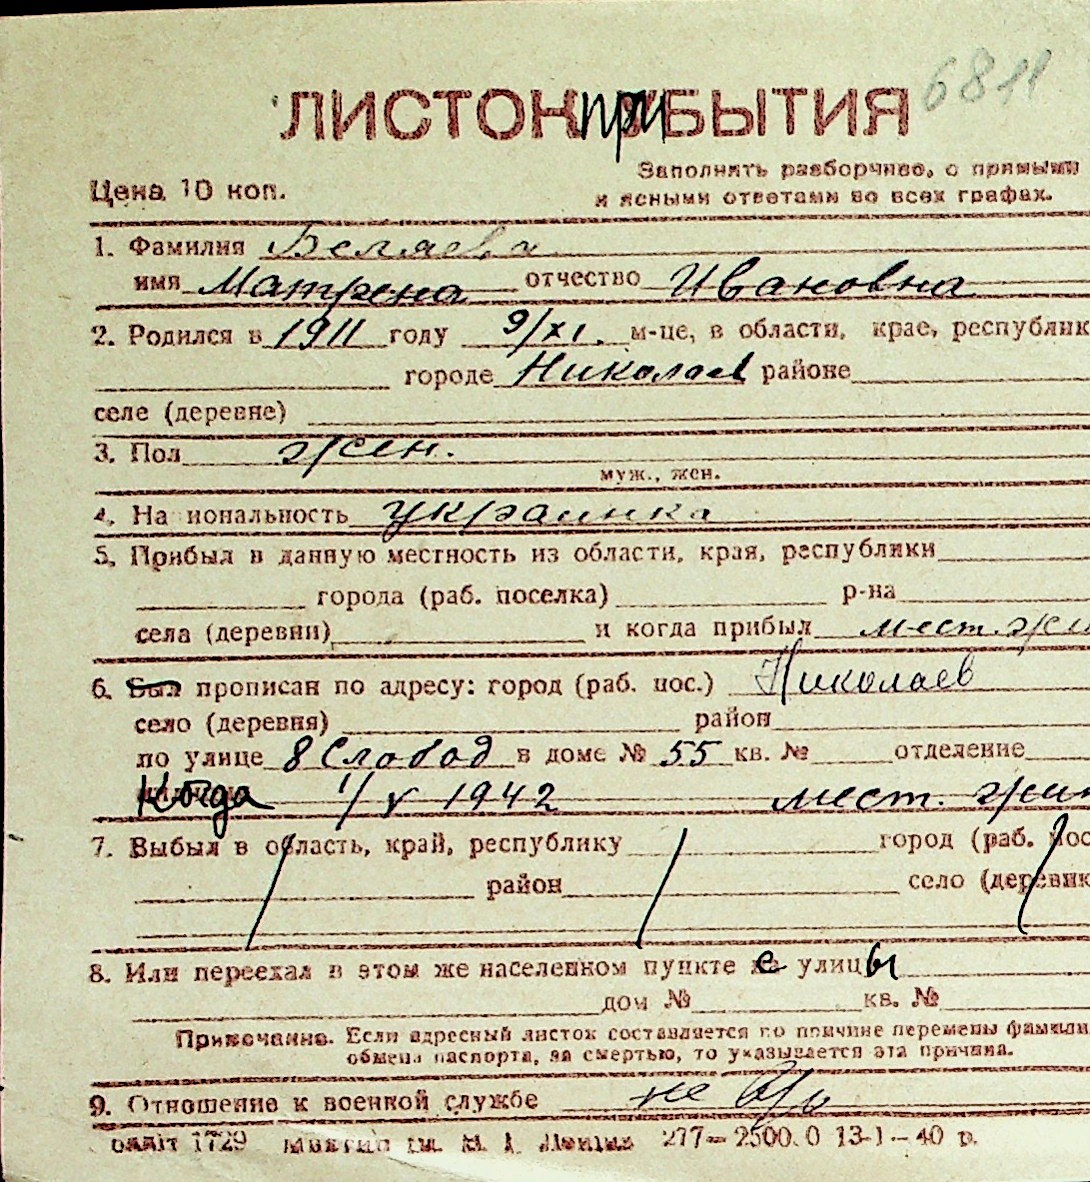 6811
ЛИСТОК ПРИБЫТИЯ
Заполнять разборчиво, с прямыми
Цена 10 коп.
и ясными ответами во всех графах.
1. Фамилия Беляева
имя Матрена отчество Ивановна
2. Родился в 1911 году 9/XI. м-це, в области, крае, республик
городе Николаев районе
селе (деревне)
3. Пол жен.
муж., жен.
4. На иональность украинка
5. Прибыл в данную местность из области, края, республики
города (раб. поселка) р-на
села (деревни) и когда прибыл мест. жи
6. Был прописан по адресу: город (раб. пос.) Николаев
село (деревня) район
по улице 8 Слобод в доме № 55 кв. № отделение
Когда 1/V 1942 мест. жит
7. Выбыл в область, край, республику город (раб. пос
район село (деревню
8. Или переехал в этом же населенном пункте с улицы
дом № кв. №
Примечание. Если адресный листок составляется по причине перемены фамили
обмена паспорта, за смертью, то указывается эта причина.
9. Отношение к военной службе не в/о
1729 277—2500.0 13-1—40 р.